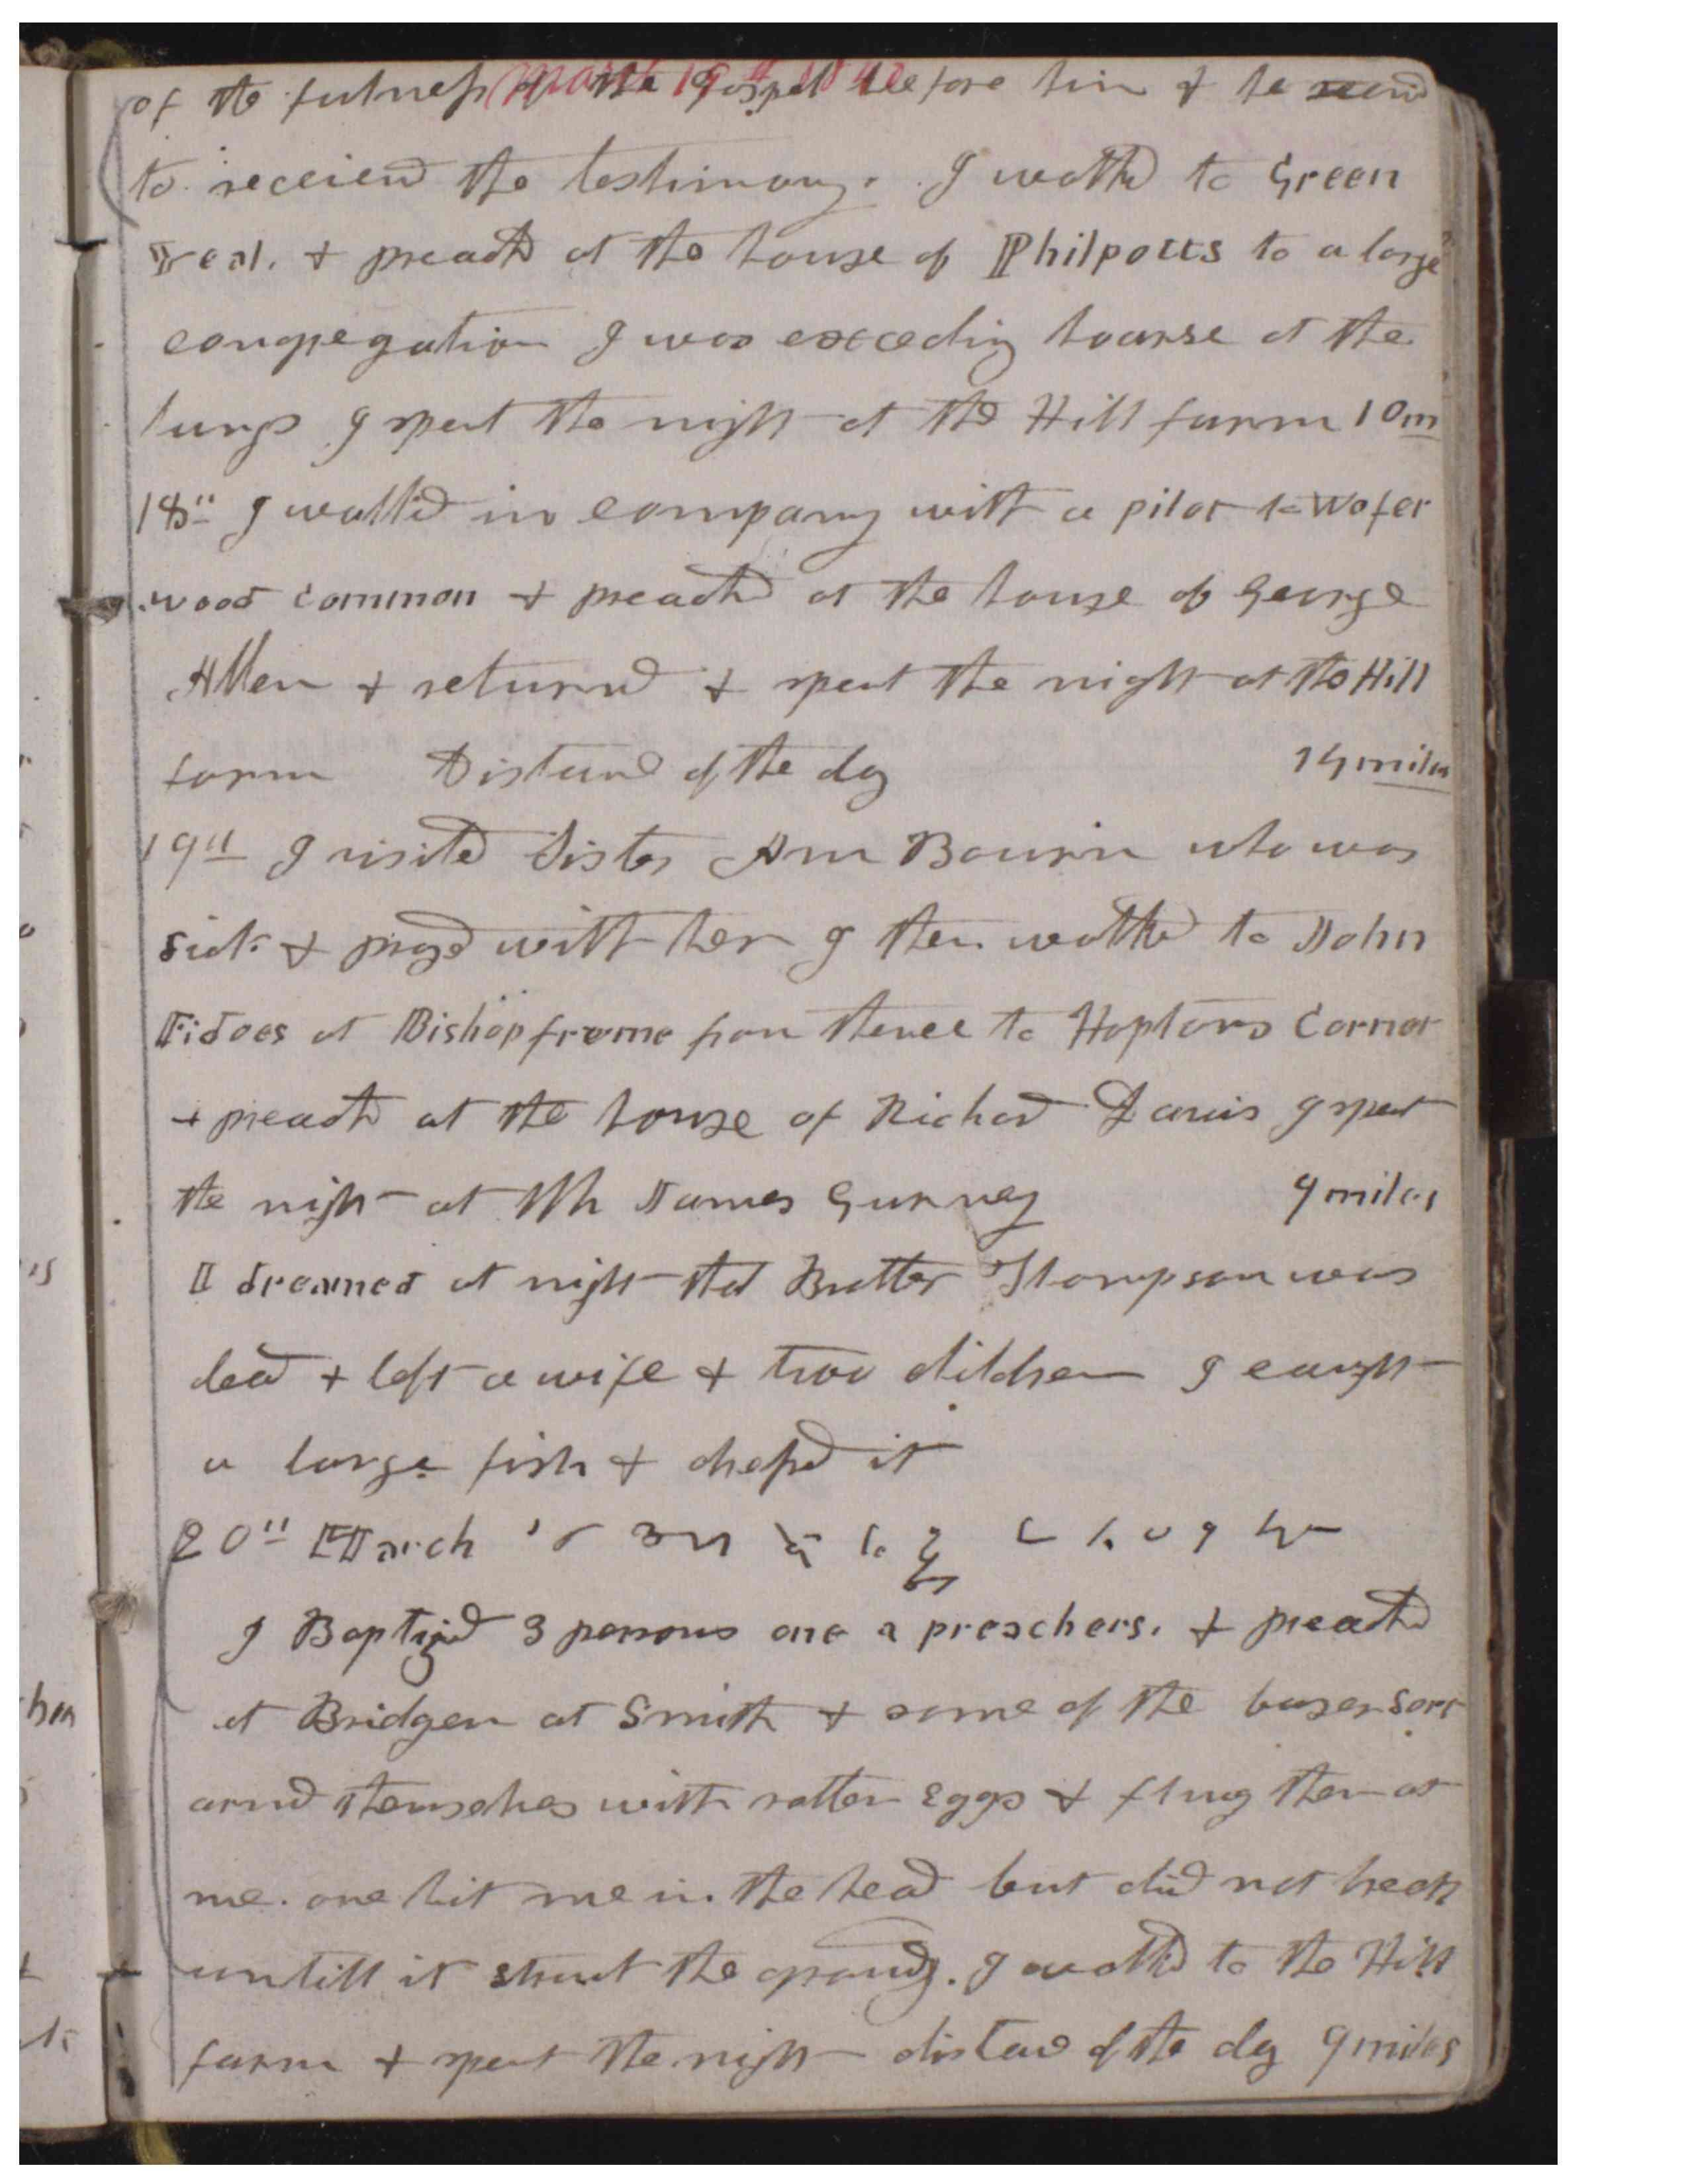 March 19th 1840
of the fulness of the Gospel before him & he
to receive the testimony. I walked to Green
& preachd at the house of Philpotts to a large
congregation I was exceeding hoarse at the
lungs I spent the night at the Hill farm 10 m
18th I walked in company with a pilot to Wofer
wood common & preachd at the house of George
Allen & returned & spent the night at the Hill
farm Distance of the day 14 miles
19th I visited Sister Ann Bourn who was
sick & prayed with her I then walked to John
Fidoes at Bishop frome from thence to Hoptons Corner
& preachd at the house of Richard Davis I spent
the night at Mr James Gurney 4 miles
I dreamed at night that Brother Thompson was
dead & left a wife & two children I caught
a large fish & dressd it
20th March
I Baptized 3 persons one a preachers. & preachd
at Bridgen at Smith & some of the baser sort
armd themselves with rotten Eggs & flung them at
me. one hit me in the head but did not break
untill it struck the ground. I walked to the Hill
farm & spent the night distance of the day 9 miles